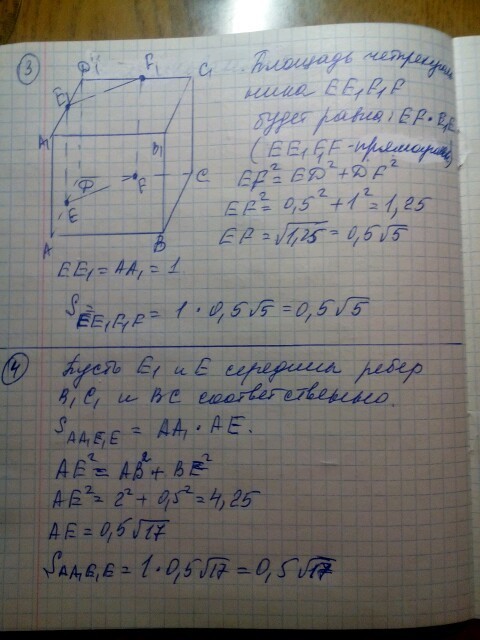 3
D1 F1 C1
E1
A1 B1
D F C
E
A B
Площадь четырехуголь
ника EE1F1F
будет равна: EF · E1E
(EE1F1F - прямоугольн)
EF² = ED² + DF²
EF² = 0,5² + 1² = 1,25
EF = √1,25 = 0,5√5
EE1 = AA1 = 1
S EE1F1F = 1 · 0,5√5 = 0,5√5
4 Пусть E1 и E середины ребер
B1C1 и BC соответственно.
S AA1E1E = AA1 · AE.
AE² = AB² + BE²
AE² = 2² + 0,5² = 4,25
AE = 0,5√17
S AA1E1E = 1 · 0,5√17 = 0,5√17